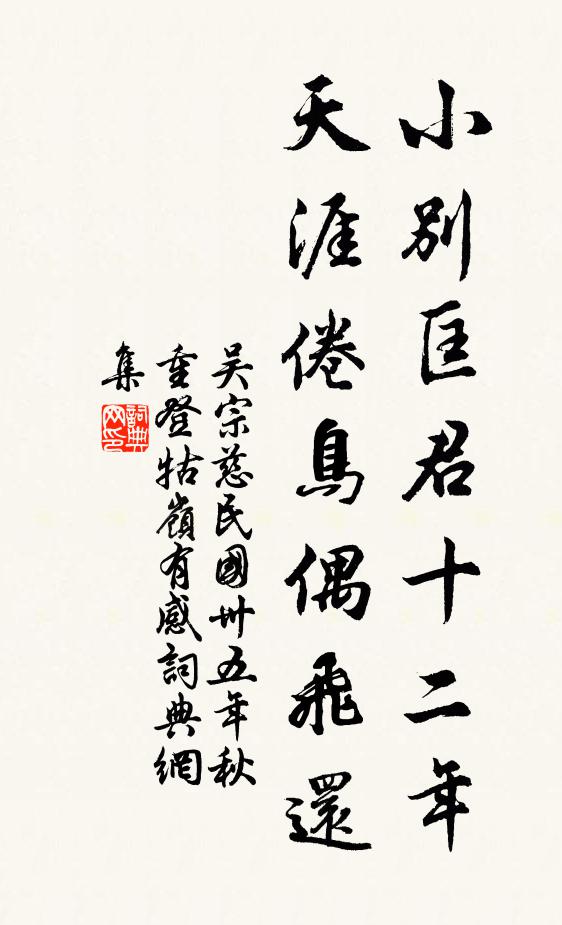 小別匡君十二年
天涯倦鳥偶飛還
吳宗慈民國卅五年秋
重登牯嶺有感詞典網
集
詞典网印